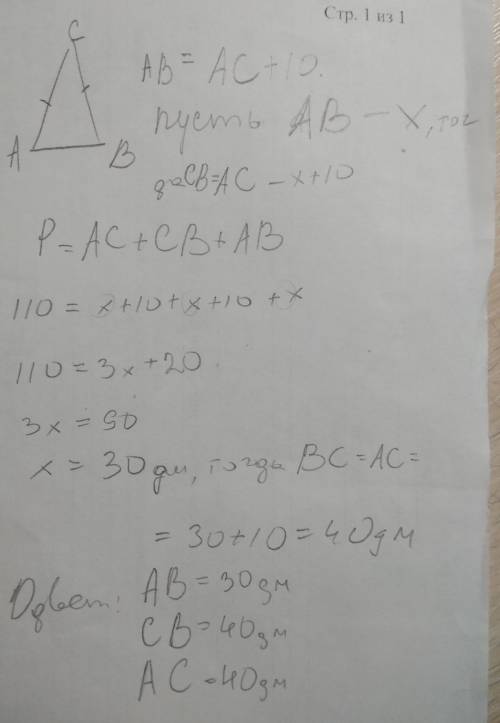 Стр. 1 из 1
C
A
B
AB = AC + 10.
пусть AB – x, тог
да CB = AC – x + 10
P = AC + CB + AB
110 = x + 10 + x + 10 + x
110 = 3x + 20
3x = 90
x = 30 дм, тогда BC = AC =
= 30 + 10 = 40 дм
Ответ: AB = 30 дм
CB = 40 дм
AC = 40 дм